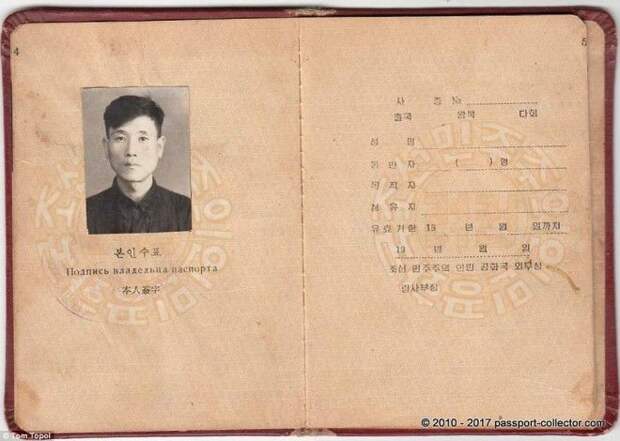 4
본인수표
Подпись владельца паспорта
本人簽字
5
사 증 №
출국 왕복 다회
성 명
동반자 ( ) 명
목적지
경유지
유효기한 19 년 월 일까지
19 년 월 일
조선 민주주의 인민 공화국 외무성
령사부장
© Tom Topol
© 2010 - 2017 passport-collector.com